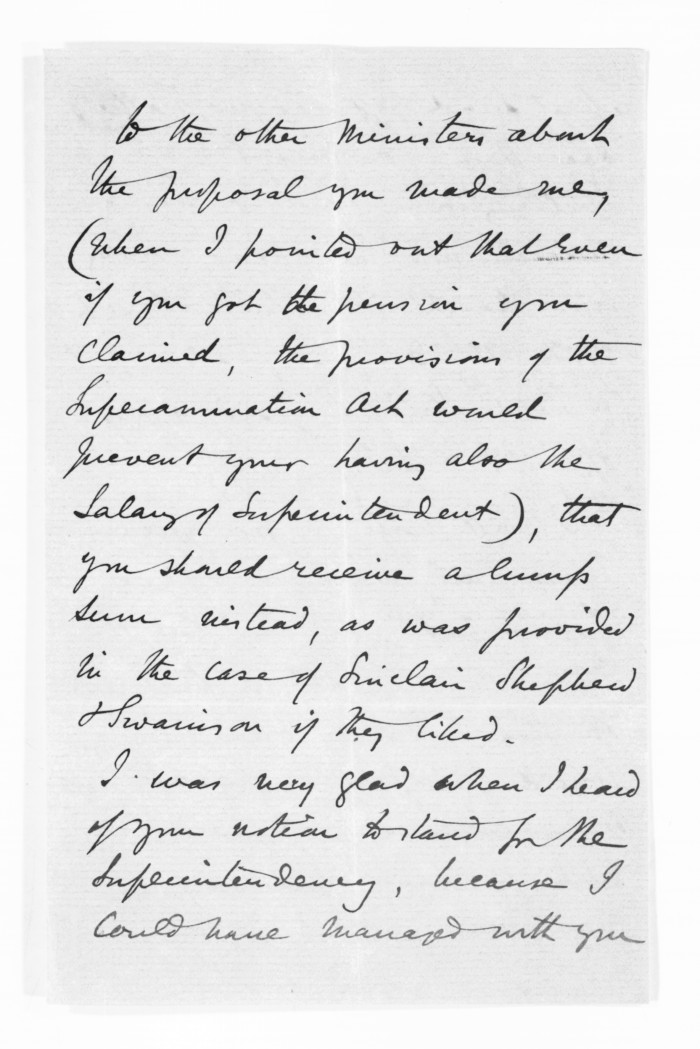 to the other Ministers about
the proposal you made me,
(when I pointed out that even
if you got the pension you
claimed, the provisions of the
Superannuation Act would
prevent your having also the
Salary of Superintendent), that
you should receive a lump
sum instead, as was provided
in the case of Sinclair Shepherd
& Swainson if they liked.
I was very glad when I heard
of your notion to stand for the
Superintendency, because I
could have managed with you